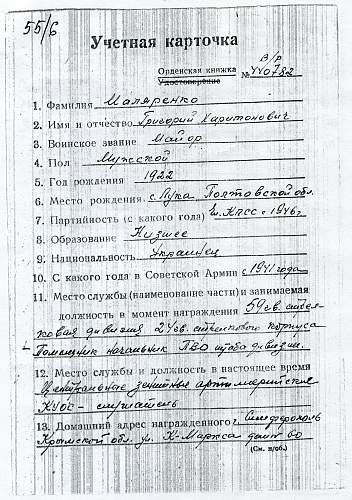 55/6
Учетная карточка
в/р
Орденская книжка
Удостоверение № 440782
1. Фамилия Маляренко
2. Имя и отчество Григорий Харитонович
3. Воинское звание Майор
4. Пол Мужской
5. Год рождения 1922
6. Место рождения с. Лука Полтавской обл.
7. Партийность (с какого года) чл. КПСС с 1946 г
8. Образование Низшее
9. Национальность Украинец
10. С какого года в Советской Армии с 1941 года
11. Место службы (наименование части) и занимаемая
должность в момент награждения 59 гв. стрел-
ковая дивизия 24 гв. стрелкового корпуса
Помощник начальник ПВО штаба дивизии.
12. Место службы и должность в настоящее время
Центральные зенитные артиллерийские
КУОС - слушатель
13. Домашний адрес награжденного г. Симферополь
Крымской обл. ул. К-Маркса дом 60
(См. н/об.)